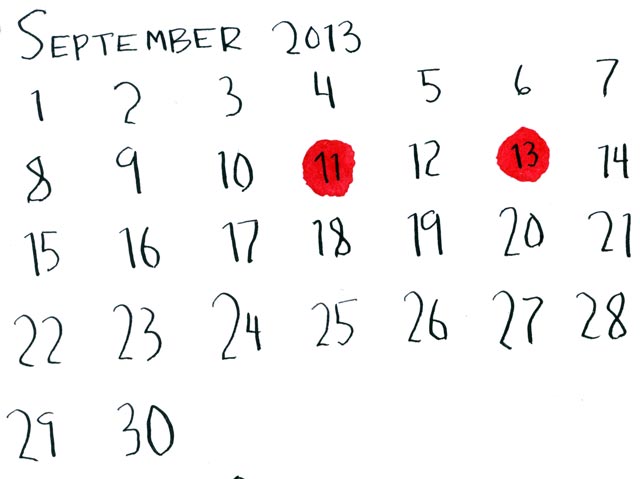 SEPTEMBER 2013
1 2 3 4 5 6 7
8 9 10 11 12 13 14
15 16 17 18 19 20 21
22 23 24 25 26 27 28
29 30